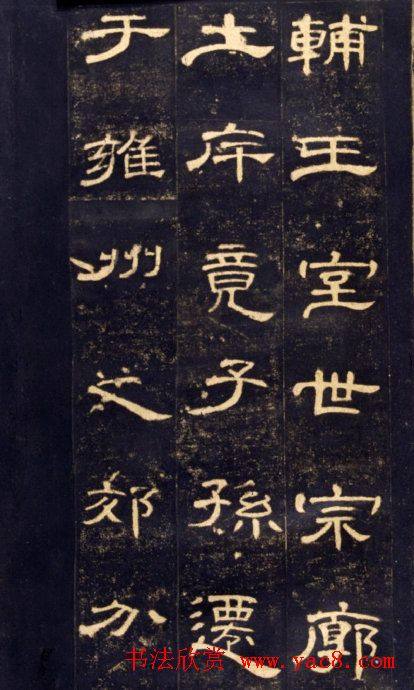 輔王室世宗廓
土斥竟子孫遷
于雍州之郊分
书法欣赏 www.yac8.com